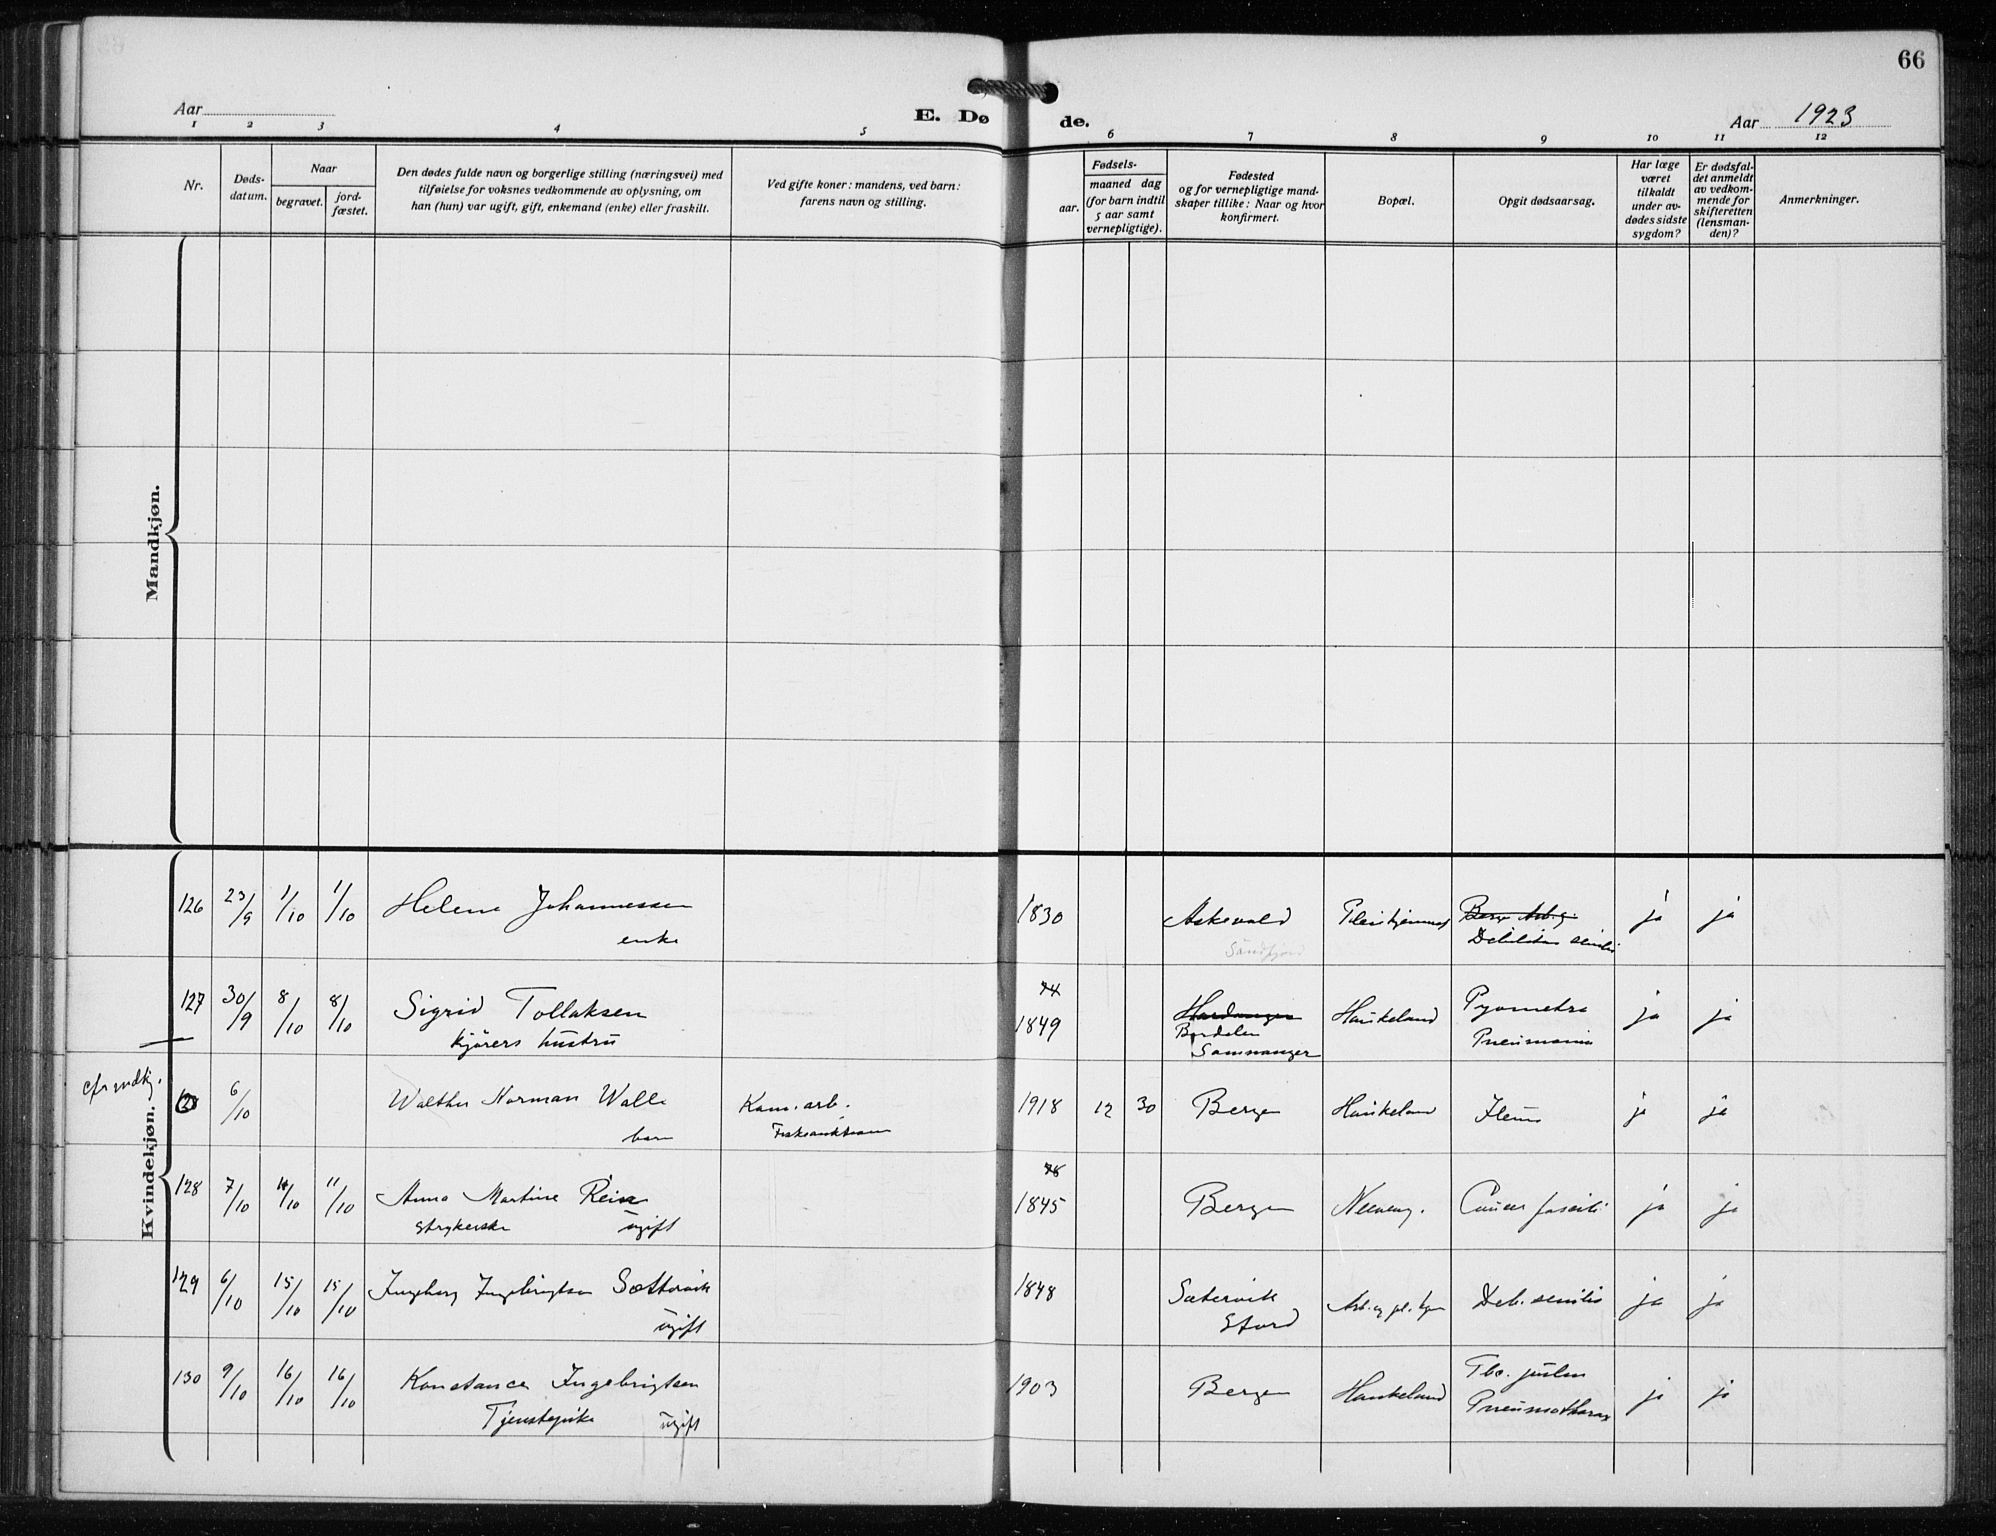 66
Aar
E. Dø de.
Aar 1923
1 2 3 4 5 6 7 8 9 10 11 12
Nr.
Døds-
datum.
Naar
begravet.
jord-
fæstet.
Den dødes fulde navn og borgerlige stilling (næringsvei) med
tilføielse for voksnes vedkommende av oplysning, om
han (hun) var ugift, gift, enkemand (enke) eller fraskilt.
Ved gifte koner: mandens, ved barn:
farens navn og stilling.
Fødsels-
aar.
maaned dag
(for barn indtil
5 aar samt
vernepligtige).
Fødested
og for vernepligtige mand-
skaper tillike: Naar og hvor
konfirmert.
Bopæl.
Opgit dødsaarsag.
Har læge
været
tilkaldt
under av-
dødes sidste
sygdom?
Er dødsfal-
det anmeldt
av vedkom-
mende for
skifteretten
(lensman-
den)?
Anmerkninger.
Mandkjøn.
Kvindekjøn.
126 23/9 1/10 1/10 Helene Johannessen 1830 Askevold Pleiehjemmet ja ja
enke Søndfjord Debilitas senilis
127 30/9 8/10 8/10 Sigrid Tollaksen 1849 Hardanger Haukeland Pyometra ja ja
kjørers hustru Samnanger Pneumonia
6/10 Walther Norman Walle Kom. arb. 1918 12 30 Bergen Haukeland Ileus ja ja
barn
128 7/10 11/10 11/10 Anna Martine Rein 1845 Bergen Cancer ja ja
strykerske ugift
129 6/10 15/10 15/10 Ingeborg Ingebrigtsen Sættervik 1848 Sætervik Arb. og pl. hjem Deb. senilis ja ja
ugift Stord
130 9/10 16/10 16/10 Konstance Ingebrigtsen 1903 Bergen Haukeland Tbc. pulm ja ja
Tjenestepike ugift Pneumothorax